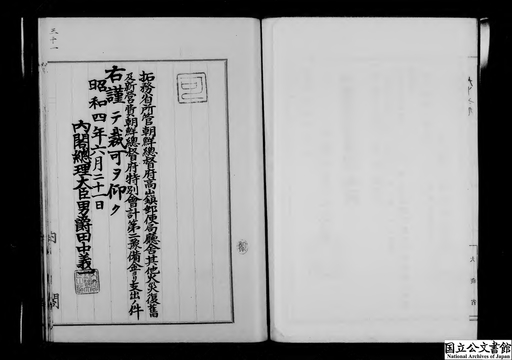 拓務省所管朝鮮總督府高山鎮郵便局廳舍其他火災復舊
及新營費朝鮮總督府特別會計第二豫備金ヨリ支出ノ件
右謹テ裁可ヲ仰ク
昭和四年六月二十一日
內閣總理大臣男爵田中義一
內
閣
国立公文書館
National Archives of Japan